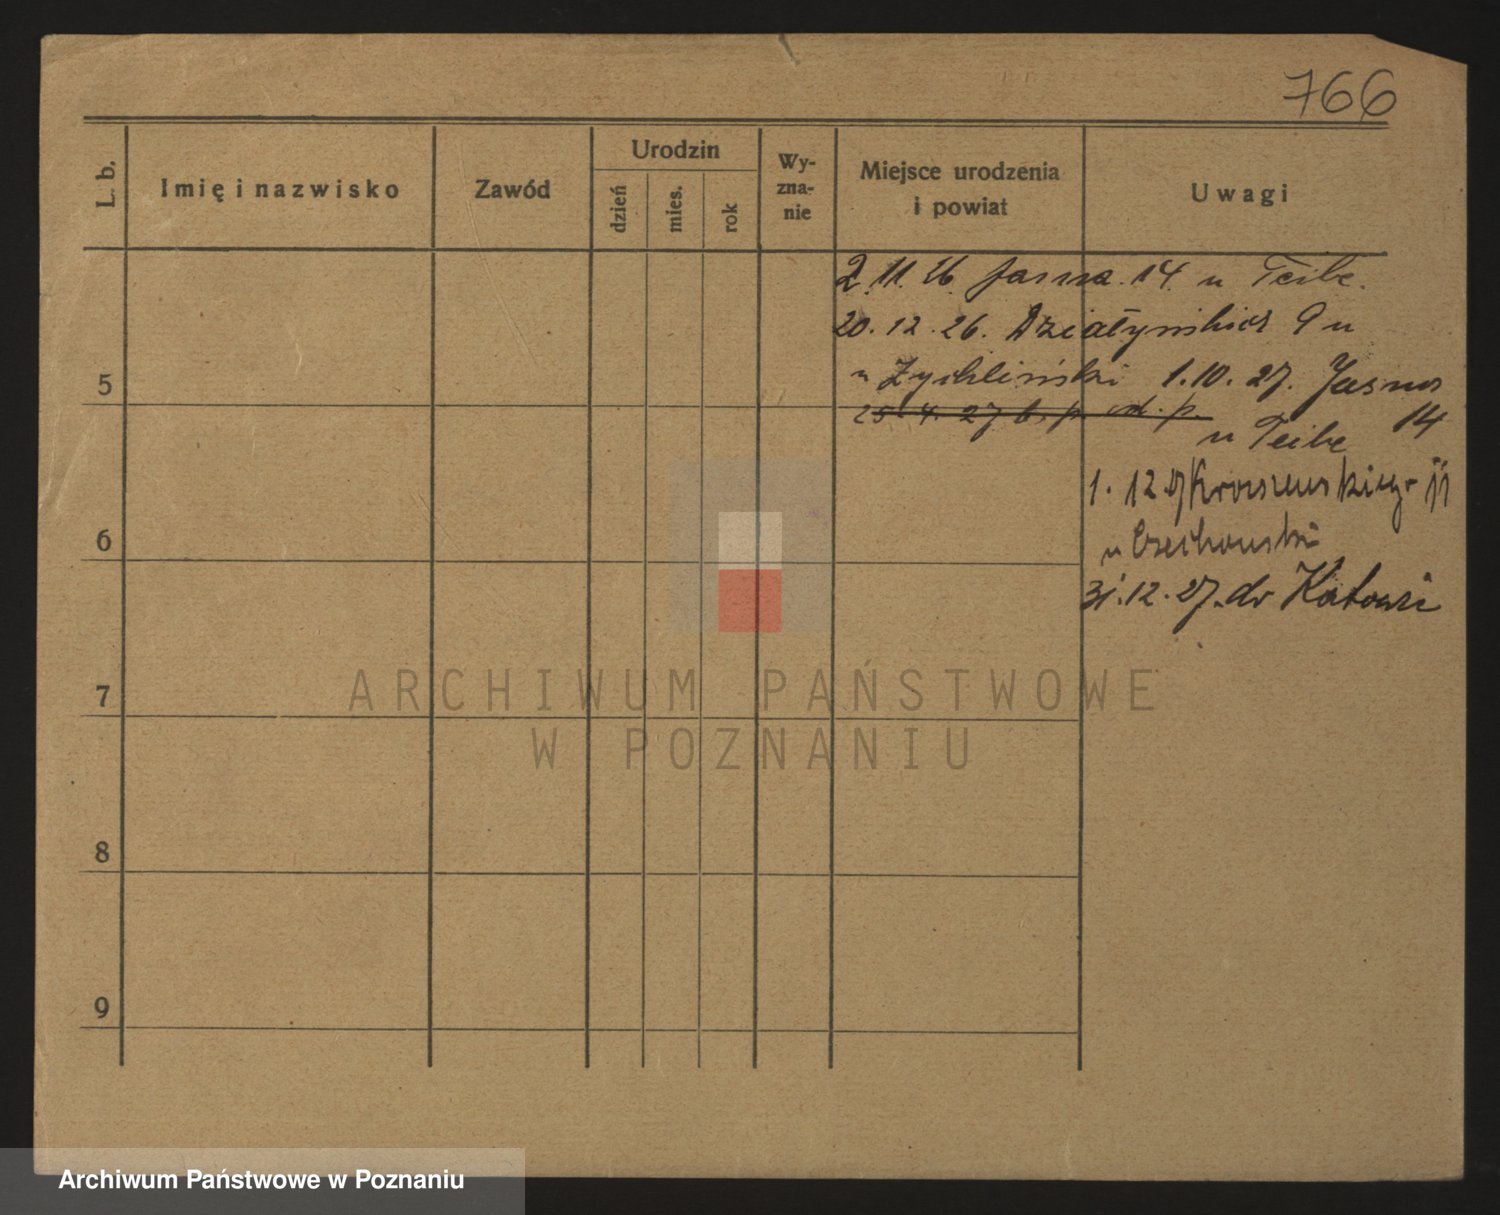 766
L. b.
Imię i nazwisko
Zawód
Urodzin
dzień
mies.
rok
Wy-
zna-
nie
Miejsce urodzenia
i powiat
Uwagi
2.11.26 Jasna. 14. u Teibe.
20.12.26. Działyńskich 9 u
u Żychliński 1.10.27. Jasna
25.4.27 b. p. d. p. 14
u Teibe
1.12.27 Kraszewskiego 11
u Czechowski
31.12.27. do Katowic
5
6
7
8
9
ARCHIWUM PAŃSTWOWE
W POZNANIU
Archiwum Państwowe w Poznaniu